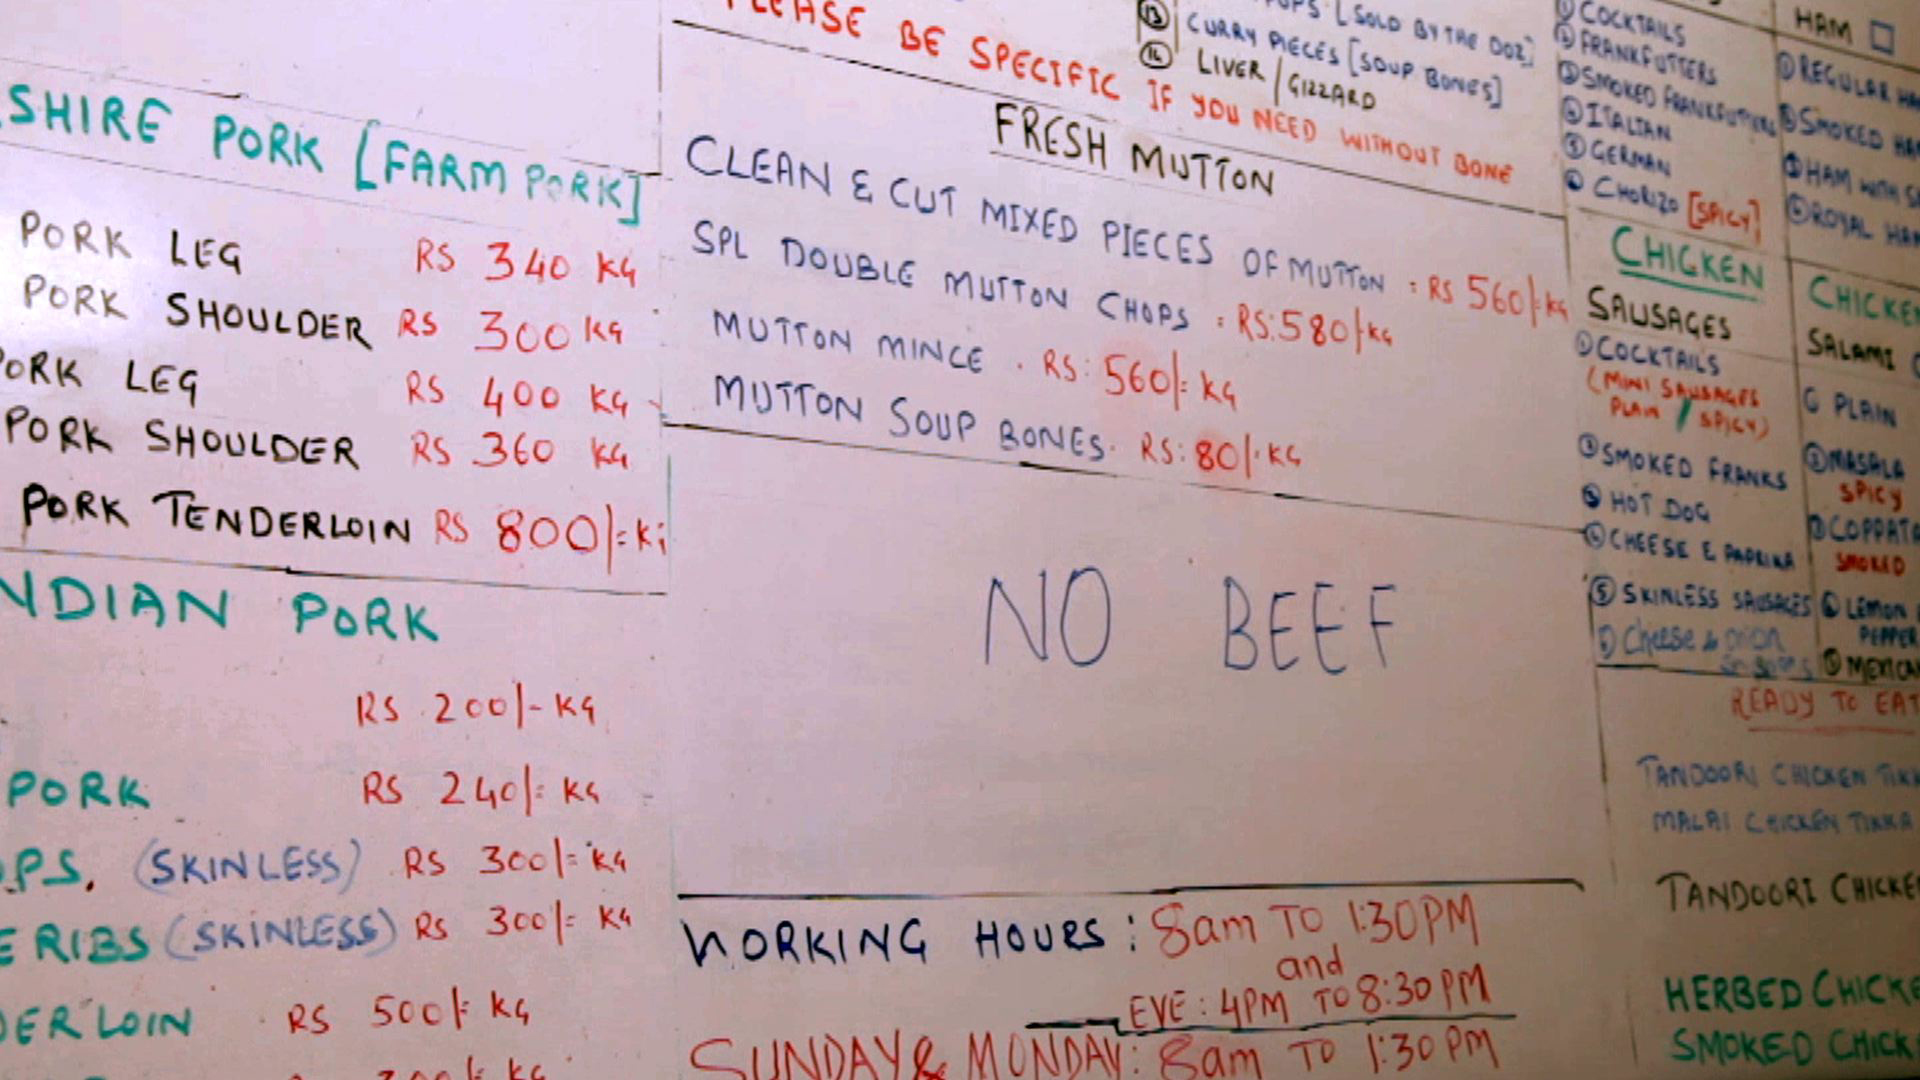 SHIRE PORK [FARM PORK]
PORK LEG RS 340 KG
PORK SHOULDER RS 300 KG
PORK LEG RS 400 KG
PORK SHOULDER RS 360 KG
PORK TENDERLOIN RS 800/=
NDIAN PORK
RS 200/- KG
PORK RS 240/= KG
PS. (SKINLESS) RS 300/= KG
RIBS (SKINLESS) RS 300/= KG
DERLOIN RS 500/= KG
[SOLD BY THE DOZ]
13 CURRY PIECES [SOUP BONES]
14 LIVER / GIZZARD
PLEASE BE SPECIFIC IF YOU NEED WITHOUT BONE
FRESH MUTTON
CLEAN & CUT MIXED PIECES OF MUTTON : RS 560/-KG
SPL DOUBLE MUTTON CHOPS : RS:580/-KG
MUTTON MINCE . RS: 560/= KG
MUTTON SOUP BONES. RS: 80/-KG
NO BEEF
WORKING HOURS : 8am TO 1:30PM
and
EVE : 4PM TO 8:30 PM
SUNDAY & MONDAY: 8am TO 1:30 PM
COCKTAILS
FRANKFUTTERS
SMOKED FRANKFUTTERS
ITALIAN
GERMAN
CHORIZO [SPICY]
CHICKEN
SAUSAGES
COCKTAILS
(MINI SAUSAGES
PLAIN / SPICY)
SMOKED FRANKS
HOT DOG
CHEESE & PAPRIKA
5 SKINLESS SAUSAGES
Cheese &
HAM
REGULAR
SMOKED
HAM WITH
ROYAL
CHICKEN
SALAMI
PLAIN
MASALA
SPICY
SMOKED
LEMON
PEPPER
READY TO EAT
TANDOORI CHICKEN
MALAI CHICKEN TIKKA
TANDOORI CHICKEN
HERBED CHICKE
SMOKED CHICK